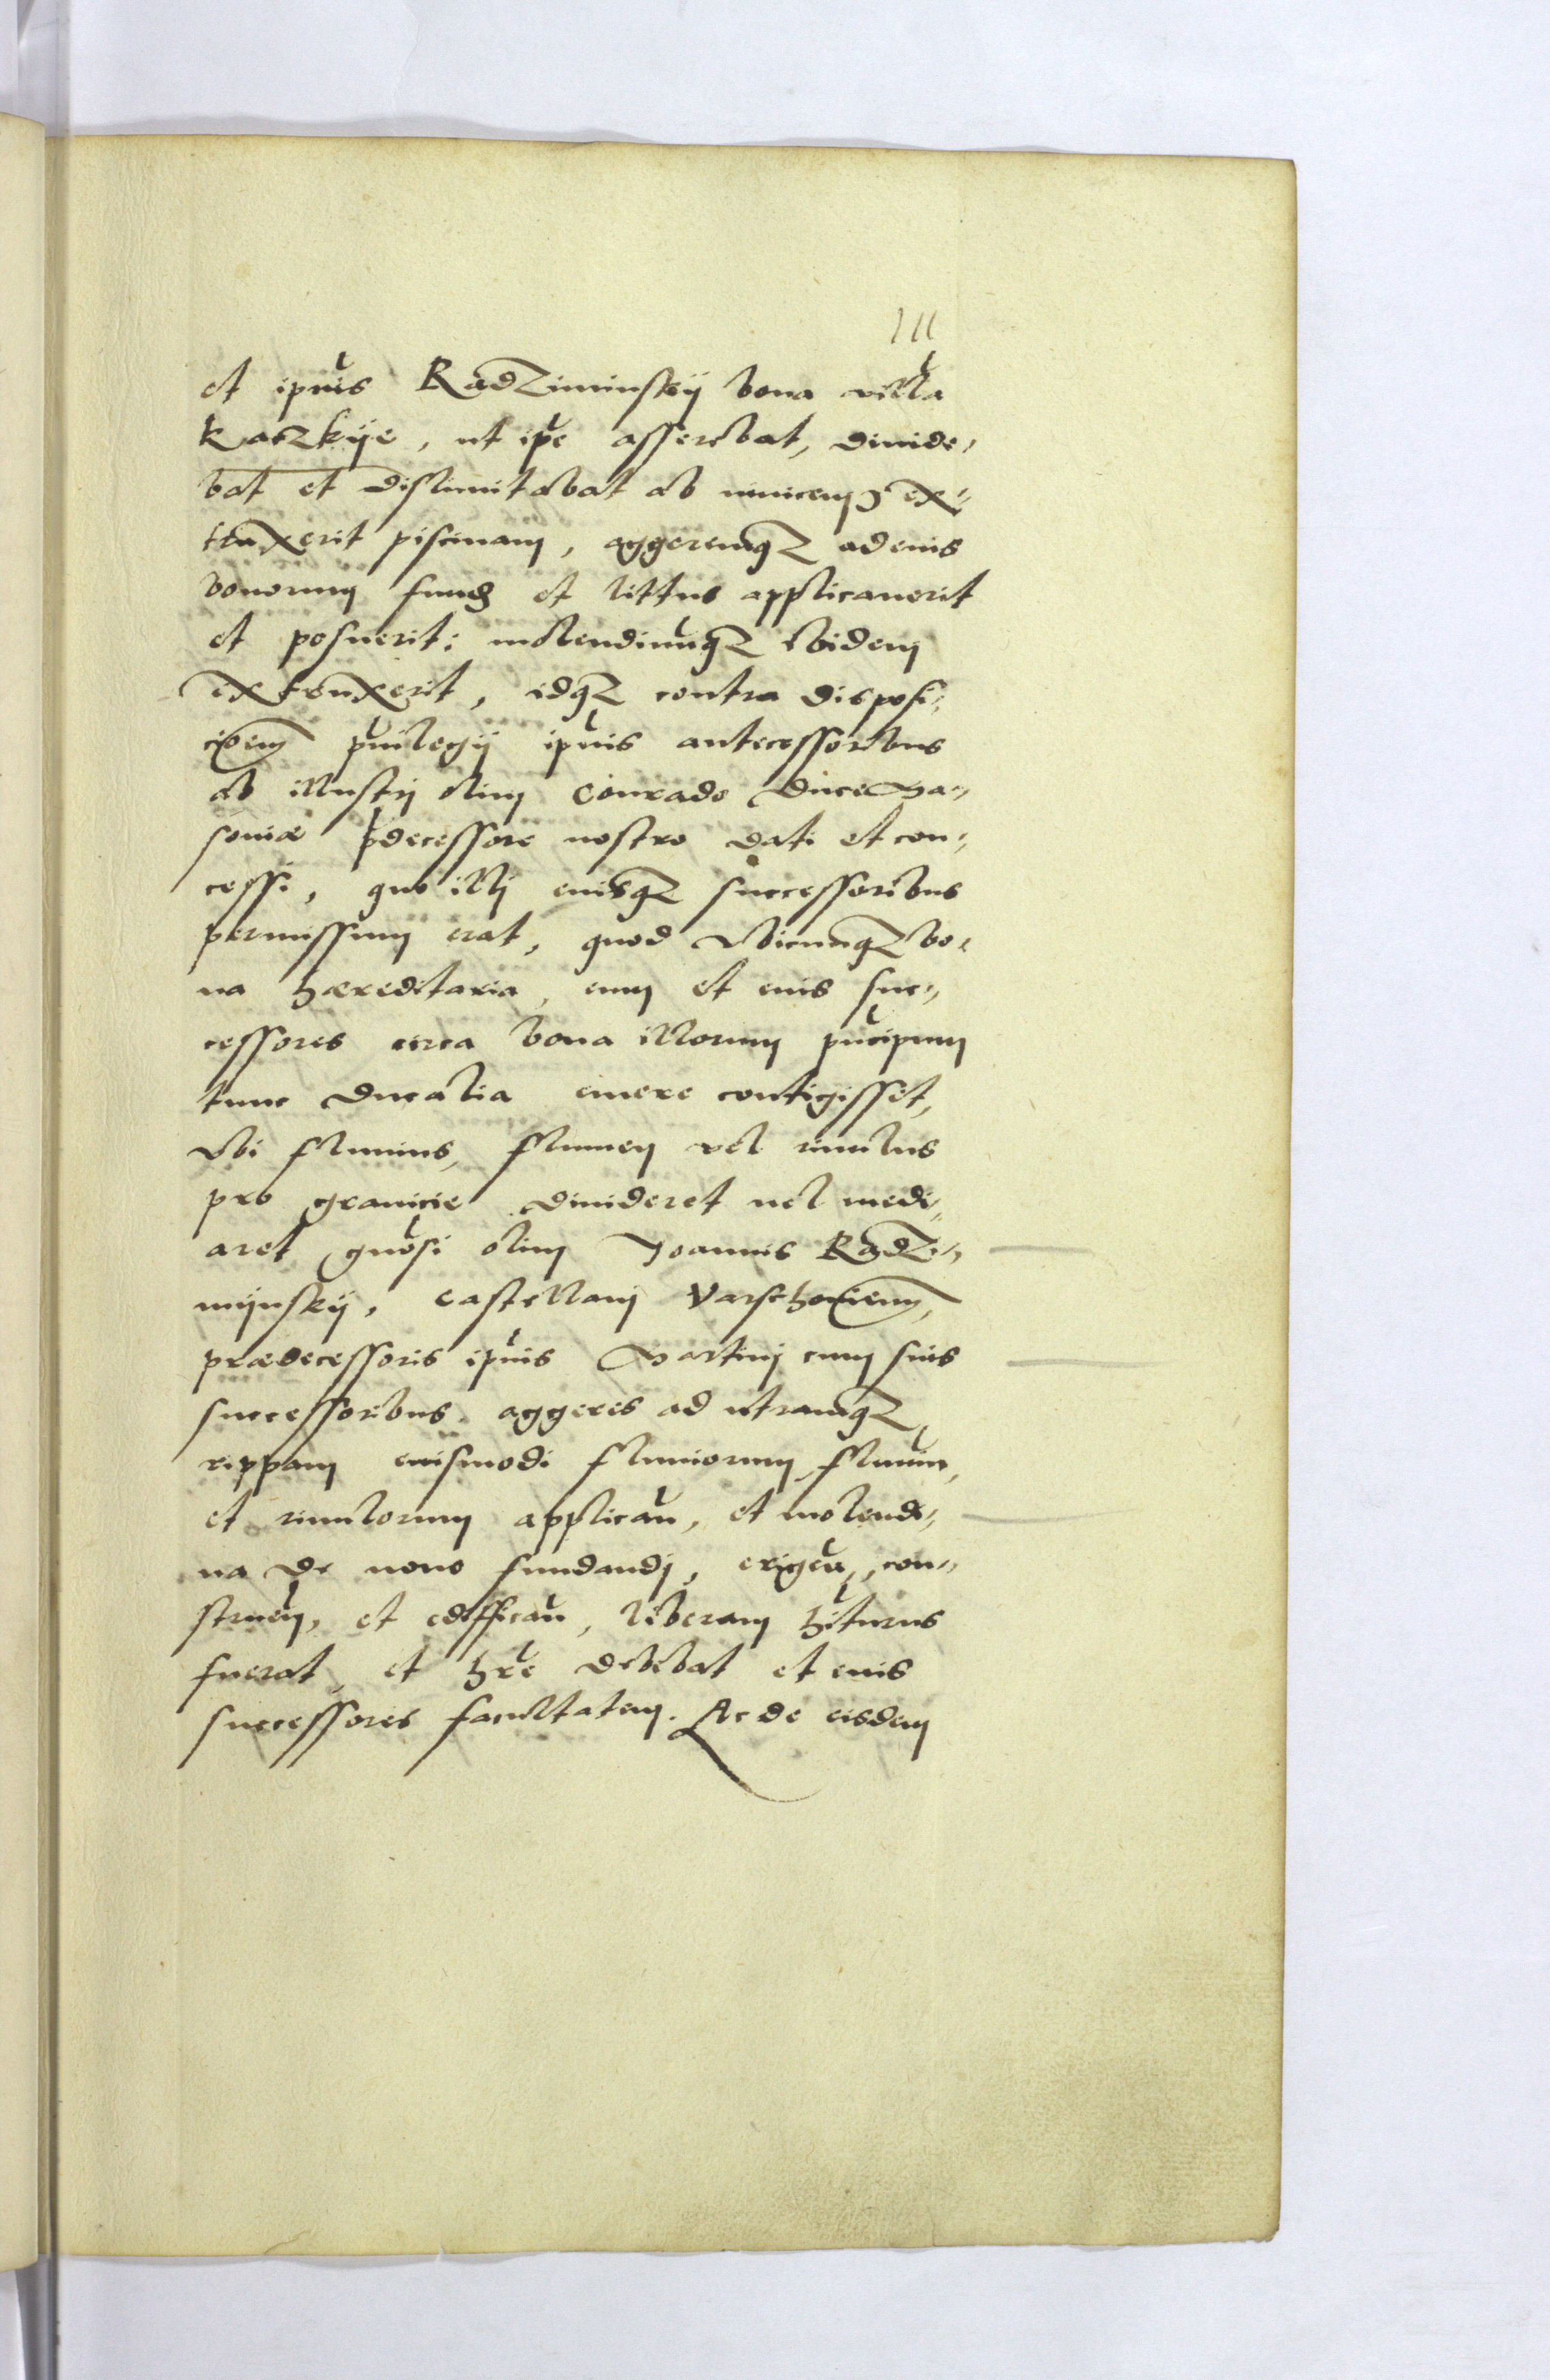 111
et ip̃ius Radziminskij bona villa
Kaczkije, ut ip̃e asserebat, diuide-
bat et dislimitabat ab inuicem, ex-
truxerit piscinam, aggeremq3 ad eius
bonorum fund et littus applicauerit
et posuerit: molendinũq3 ibidem
extruxerit, idq3 contra disposi-
cioem p̃uilegij ip̃ius antecessoribus
ab illustrj olim Conrado Duce Ma-
souiæ p̃decessore nostro dati et con-
cessi, quo illj eiusq3 successoribus
permissum erat, quod vbicunq3 bo-
na hæreditaria, eum et eius suc-
cessores circa bona illorum p̃ncipum
tunc Ducalia emere contigisset,
vbi fluuius, flumen vel riuulus
pro granicie diuideret uel medi-
aret gñosi olim Joannis Radzi-
mijnskij, castellanj Varschouien,
prædecessoris ip̃ius Martinj cum suis
successoribus aggeres ad utramq3
rippam eiusmodi fluuiorum, flumin̄,
et riuulorum applicañ, et molendi-
na de nouo fundandj, erigeñ, con-
strueñ, et edifficañ, liberam h̃iturus
fuerat, et hr̃e debebat et eius
successores facultatem. Ac de eisdem